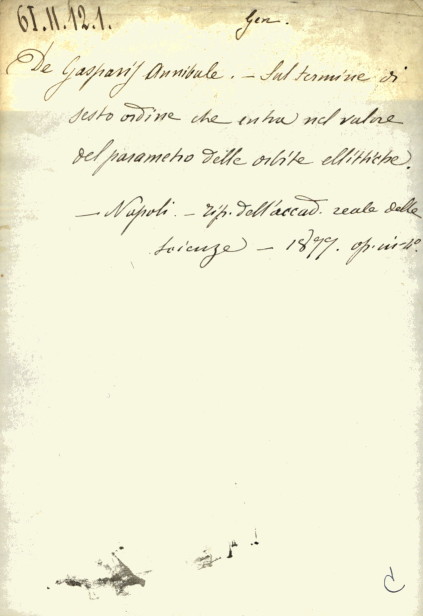 61.II.12.1.
Gen.
De Gasparis Annibale. — Sul termine di
sesto ordine che entra nel valore
del parametro delle orbite ellittiche.
— Napoli. — tip. dell'accad. reale delle
scienze — 1877. op. in-4°.